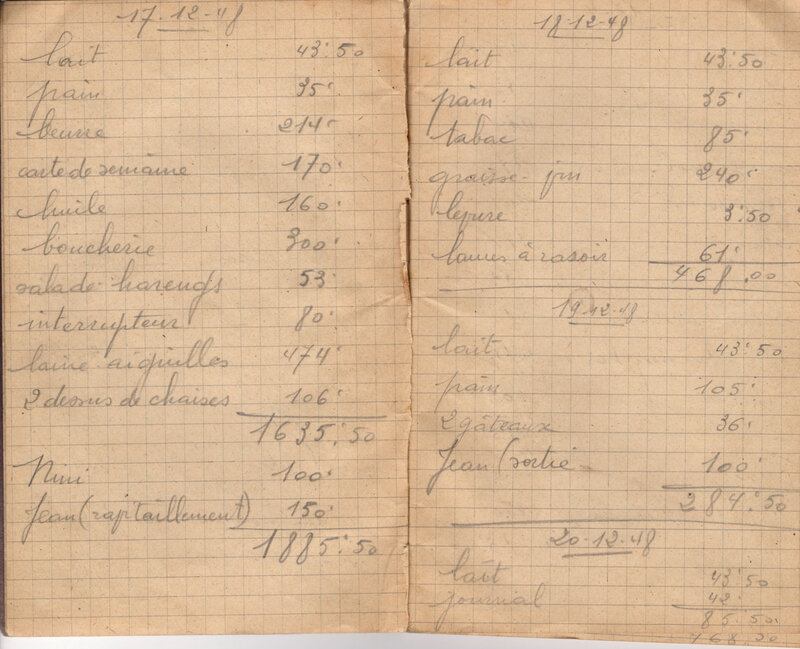 17.12.48
lait 43.50
pain 35.
beurre 214.
carte de semaine 170.
huile 160.
boucherie 300.
salade harengs 53.
interrupteur 80.
laine aiguilles 474.
2 dessus de chaises 106.
1635.50
Nini 100.
Jean (rapitaillement) 150.
1885.50
18-12-48
lait 43.50
pain 35.
tabac 85.
graisse- 240.
lepure 3.50
lames à rasoir 61.
468.00
19-12-48
lait 43.50
pain 105.
2 gâteaux 36.
Jean (sortie 100.
284.50
20-12-48
lait 43.50
journal 42.
85.50